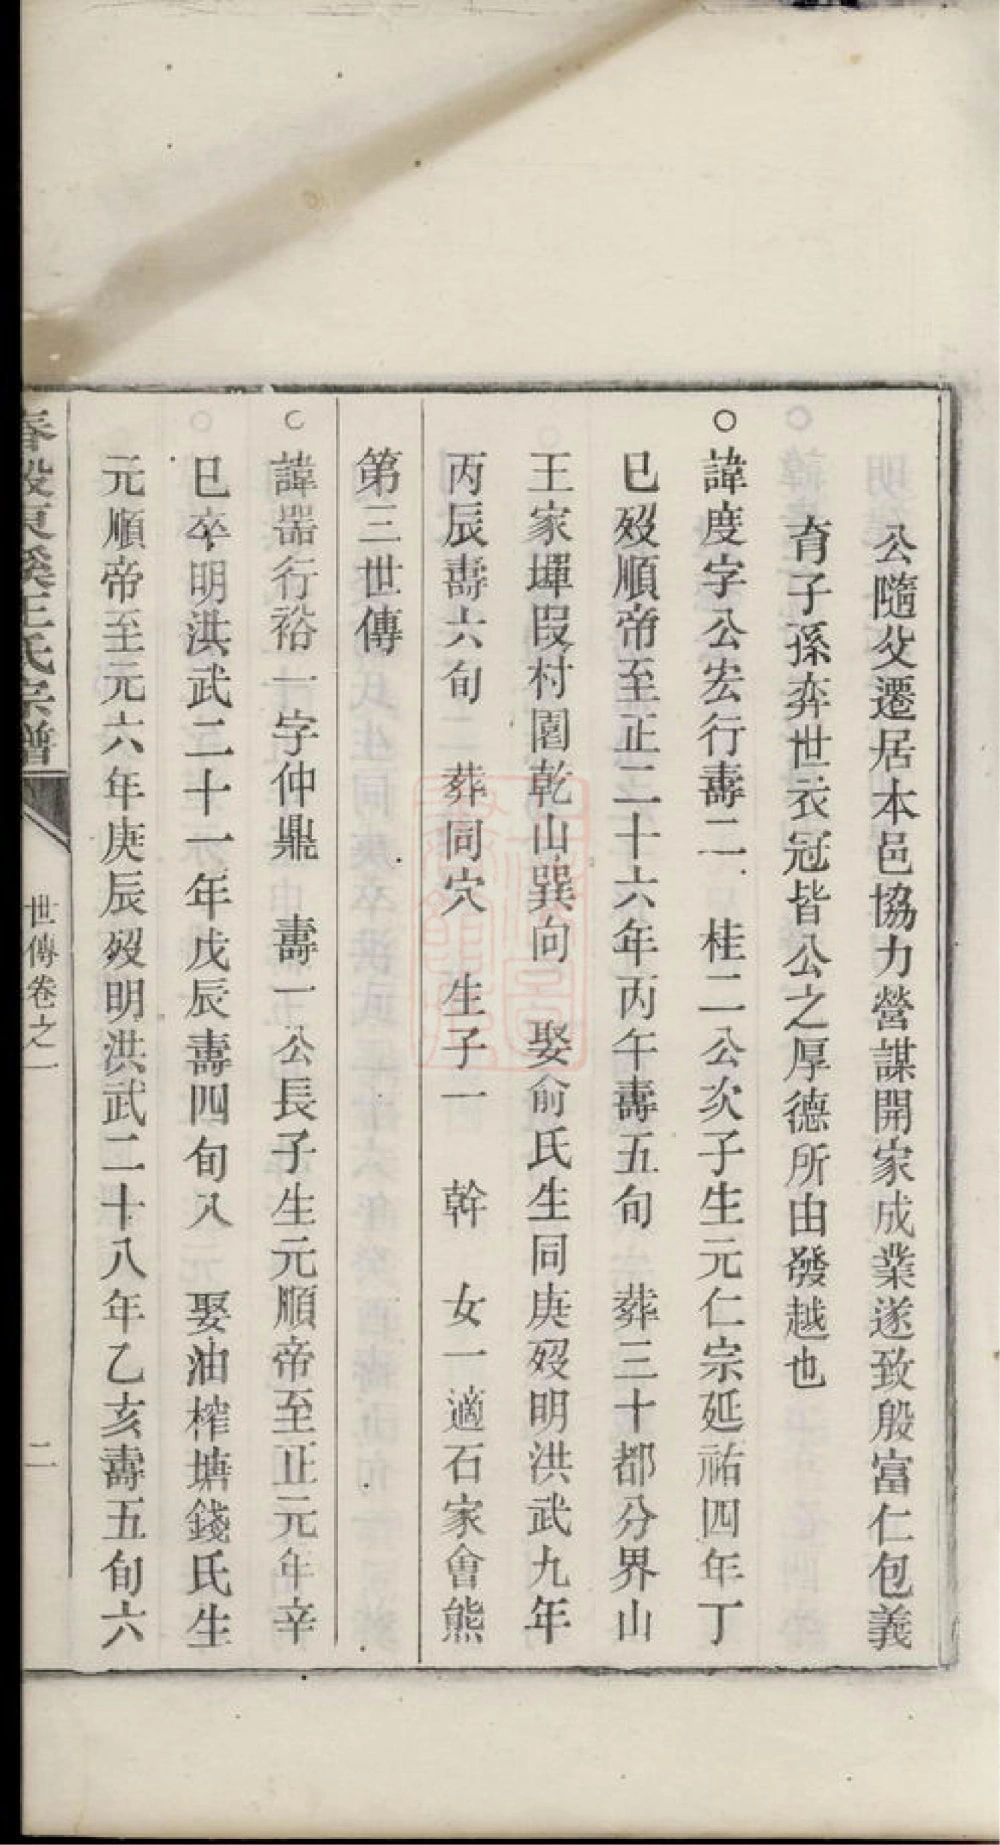 公隨父遷居本邑協力營謀開家成業遂致殷富仁包義
育子孫弈世衣冠皆公之厚德所由發越也
○諱度字公宏行壽二 桂二公次子生元仁宗延祐四年丁
巳歿順帝至正二十六年丙午壽五旬 葬三十都分界山
王家墠叚村園乾山巽向 娶俞氏生同庚歿明洪武九年
丙辰壽六旬 葬同穴 生子一 幹 女一適石家會熊
第三世傳
○諱器行裕一字仲鼎 壽一公長子生元順帝至正元年辛
巳卒明洪武二十一年戊辰壽四旬八 娶油榨塘錢氏生
元順帝至元六年庚辰歿明洪武二十八年乙亥壽五旬六
春穀東溪王氏宗譜 世傳卷之一 二